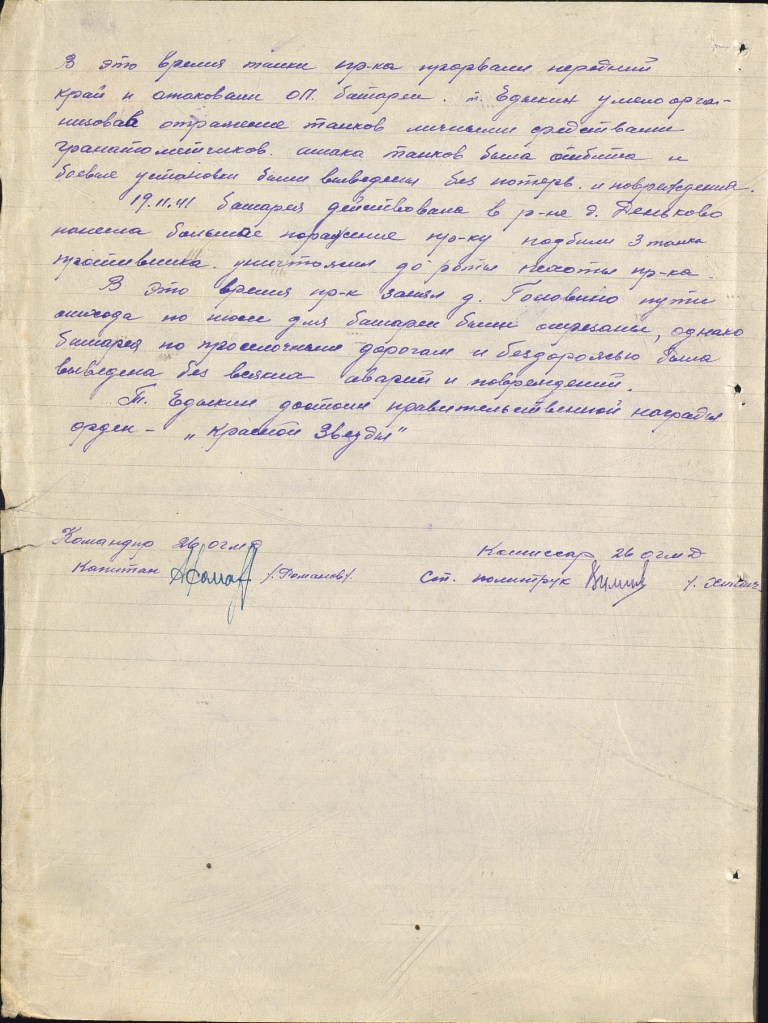 В это время танки пр-ка прорвали передний
край и атаковали ОП. батареи. т. Едыкин умело орга-
низовав отражение танков личными средствами
гранатометчиков. атака танков была отбита и
боевые установки были выведены без потерь. и повреждения.
19.11.41 батарея действовала в р-не д. Деньково
нанесла большое поражение пр-ку подбили 3 танка
противника. уничтожил до роты пехоты пр-ка.
В это время пр-к занял д. Головино пути
отхода по шоссе для батареи были отрезаны, однако
батарея по проселочным дорогам и бездорожью была
выведена без всяких аварий и повреждений.
Т. Едыкин достоин правительственной награды
орден – „Красной Звезды"
Командир 26 огмд Комиссар 26 огмд
Капитан /.Романов/. Ст. политрук /.